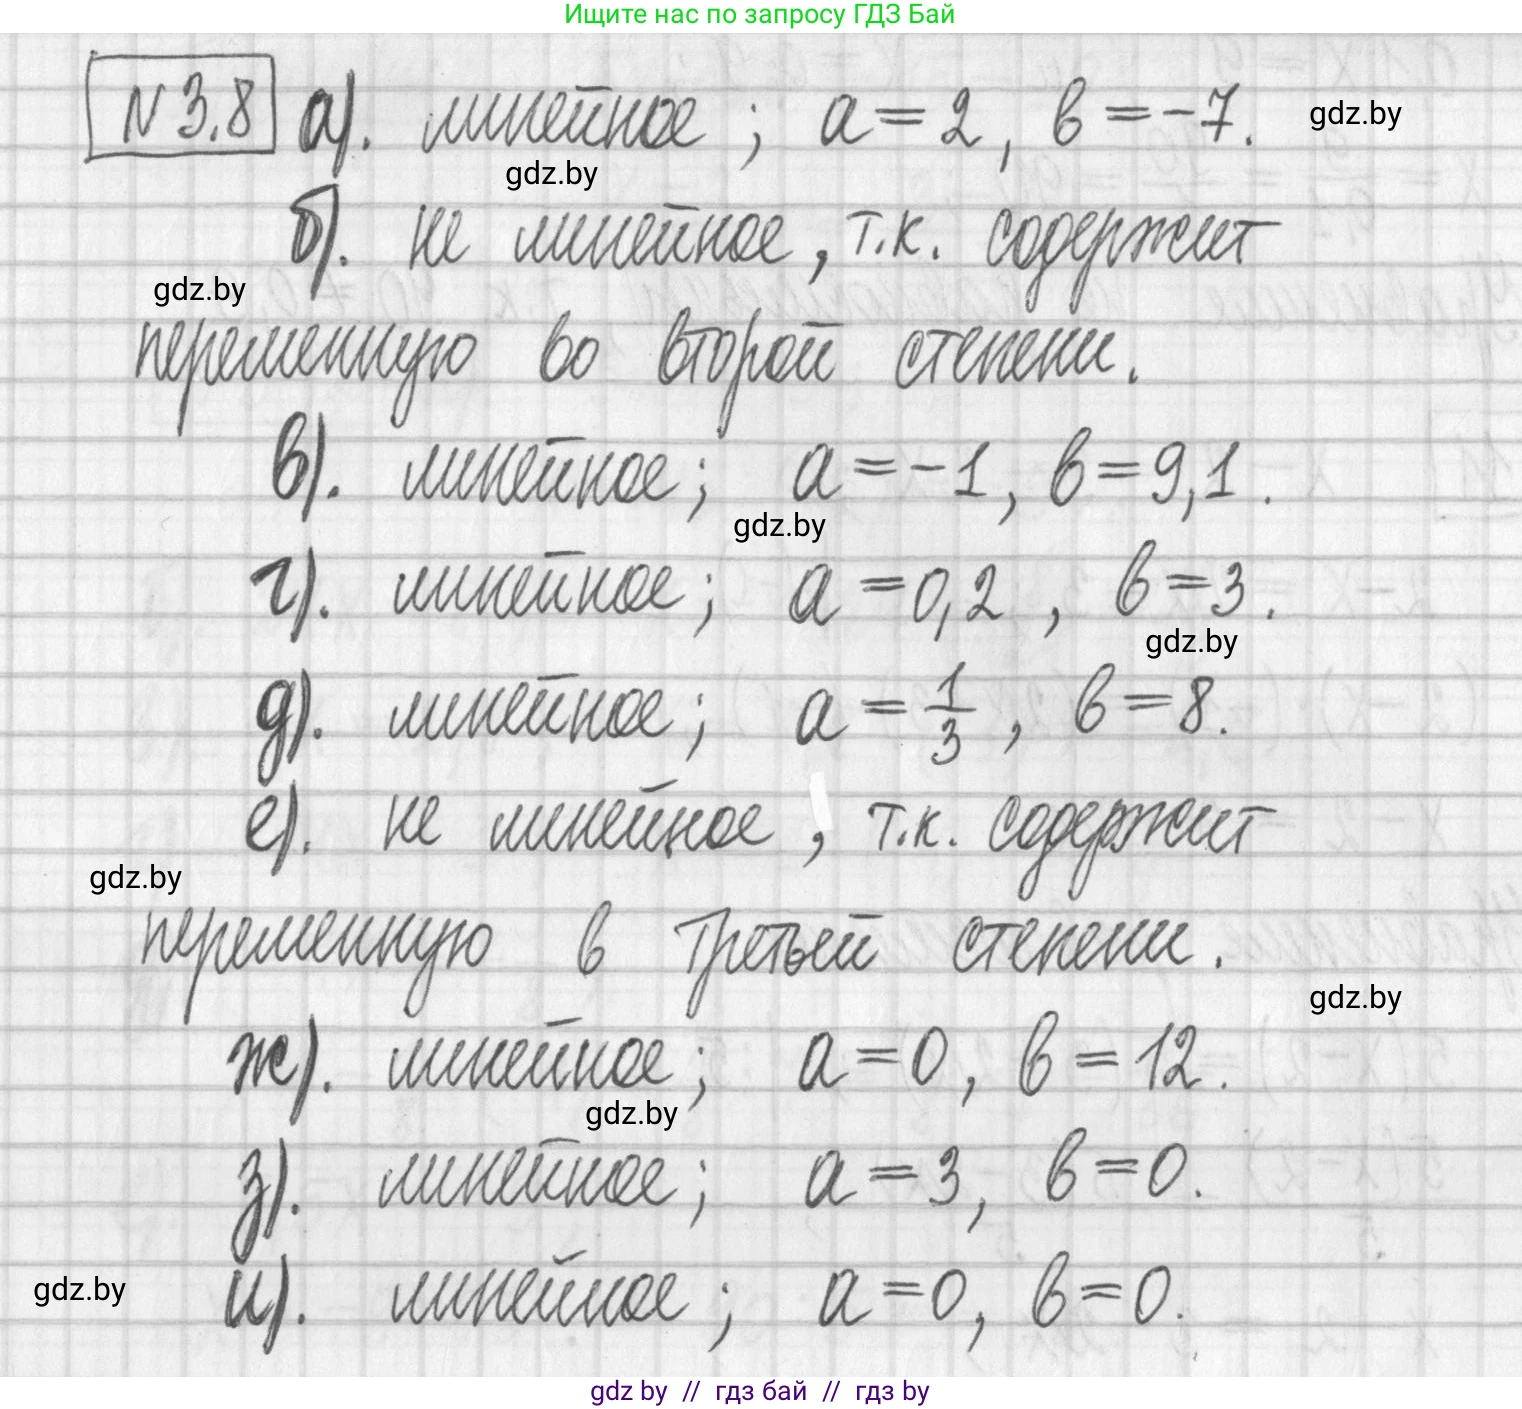 Ищите нас по запросу ГДЗ Бай
N 3.8 а). линейное; a = 2, b = -7. gdz.by
gdz.by
б). не линейное, т.к. содержит
gdz.by
переменную во второй степени.
в). линейное; a = -1, b = 9,1.
gdz.by
г). линейное; a = 0,2, b = 3.
gdz.by
д). линейное; a = 1/3, b = 8.
е). не линейное, т.к. содержит
gdz.by
переменную в третьей степени.
gdz.by
ж). линейное; a = 0, b = 12.
gdz.by
з). линейное; a = 3, b = 0.
gdz.by и). линейное; a = 0, b = 0.
gdz by // гдз бай // гдз by